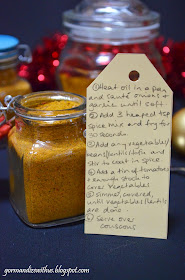 ① Heat oil in a pan
and sauté onions +
garlic until soft
② Add 3 heaped tsp
spice mix and fry for
30 seconds
③ Add any vegetables/
beans/lentils/tofu and
stir to coat in spice.
④ Add a tin of tomatoes
+ enough stock to
cover vegetables
⑤ Simmer, covered,
until vegetables/lentils
are done
⑥ Serve over
couscous
gormandizewithus.blogspot.com